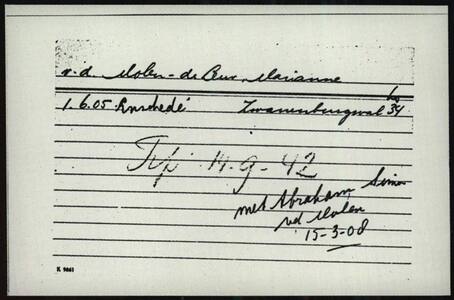 v.d. Molen - de Beer, Marianne
1.6.05 Enschedé Zwanenburgwal 34
Tp 14-9-42
met Abraham Simon
vd Molen
15-3-08
K 9861